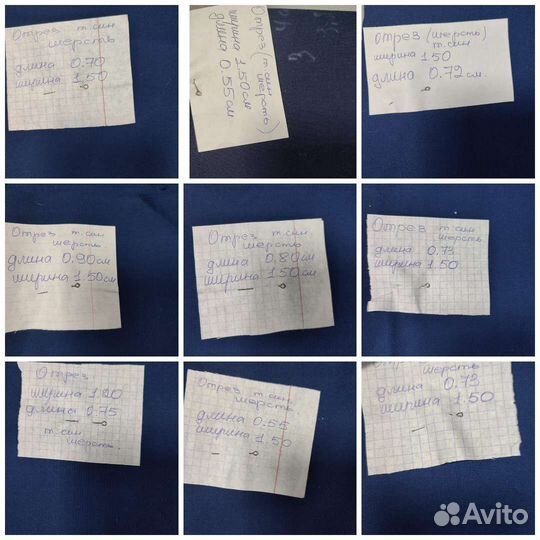 Отрез т.син
шерсть
длина 0.70
ширина 1.50
Отрез (т.син
шерсть)
ширина 1.50см
длина 0.55см
отрез (шерсть)
т.син
ширина 1.50
длина 0.72см.
Отрез т.син
шерсть
длина 0.90см
ширина 1.50см
Отрез т.син.
шерсть
длина 0.80см
ширина 1.50см
Отрез т.син
шерсть
длина 0.73
ширина 1.50
Отрез
ширина 1.00
длина 0.75
т.син
шерсть.
Отрез т.син
шерсть
длина 0.55
ширина 1.50
шерсть
длина 0.73
ширина 1.50
Avito